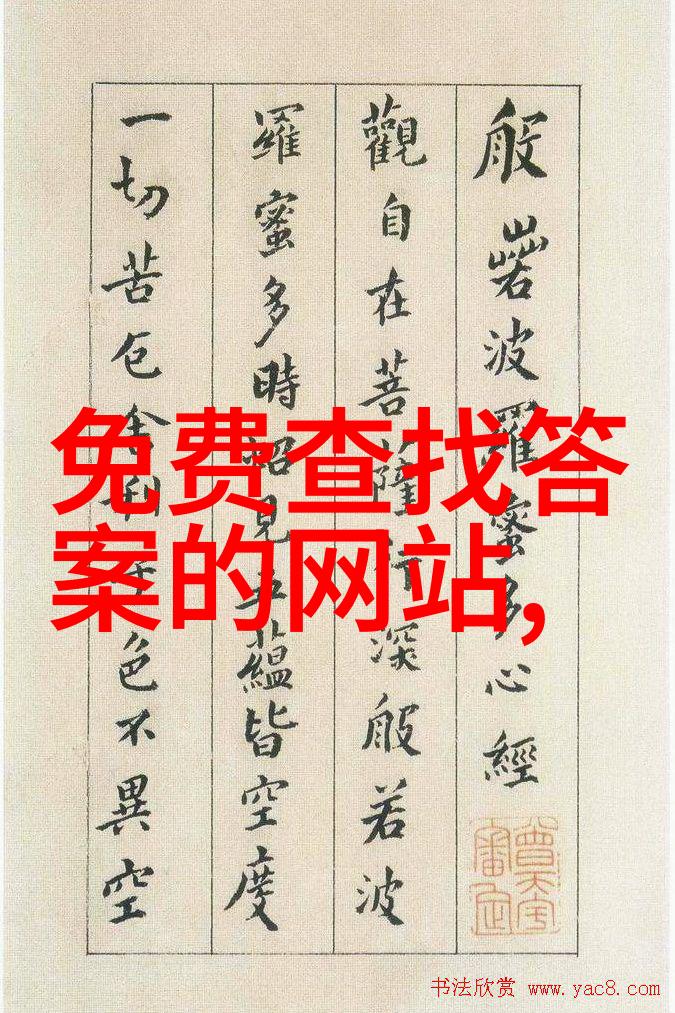 般若波羅蜜多心經
觀自在菩薩行深般若波
羅蜜多時照見五蘊皆空度
一切苦厄舍利子色不異空
免费查找答
案的网站,
书法欣赏 www.yac8.com